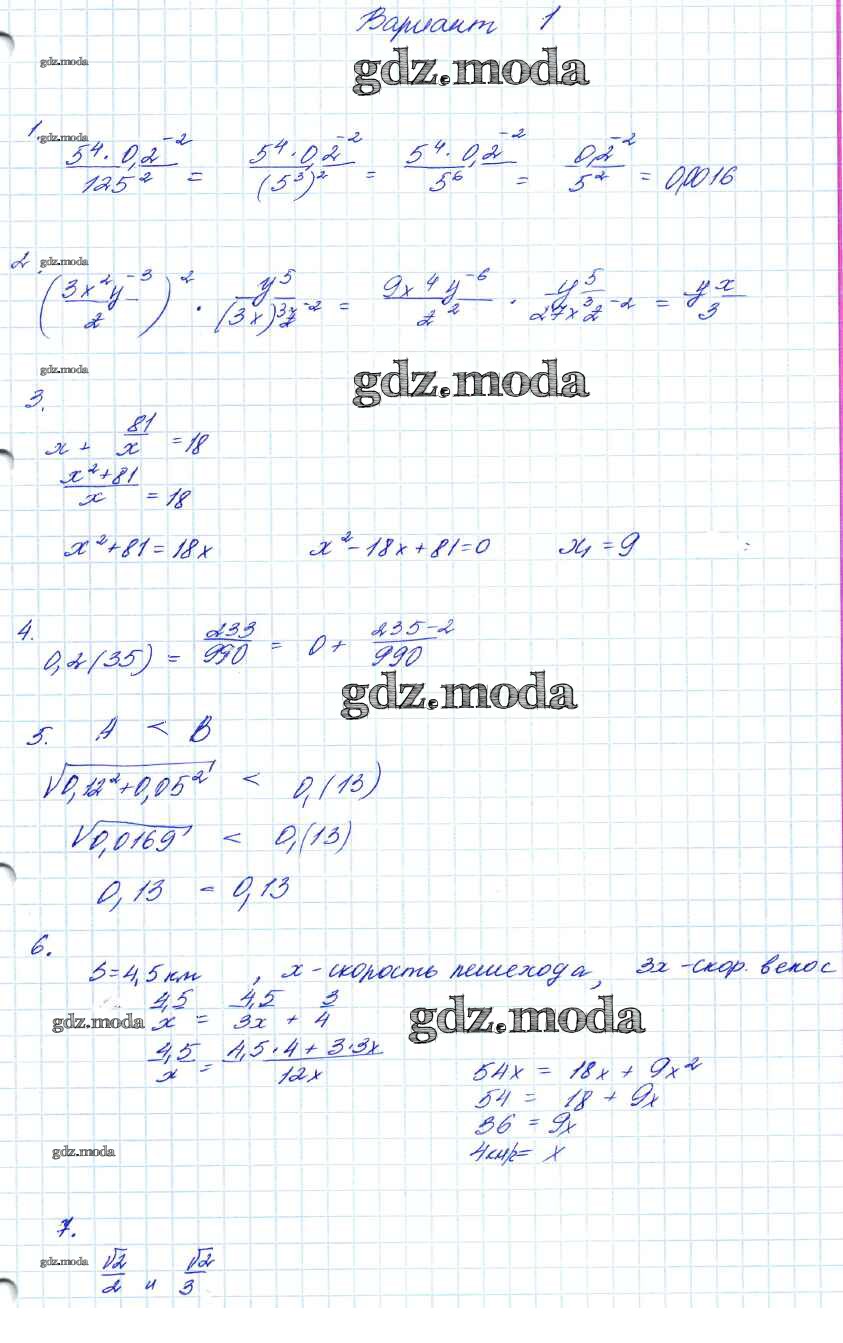 Вариант 1
gdz.moda gdz.moda
1. gdz.moda
5⁴·0,2⁻²/125² = 5⁴·0,2⁻²/(5³)² = 5⁴·0,2⁻²/5⁶ = 0,2⁻²/5² = 0,0016
2. gdz.moda
(3x²y⁻³/z)² · y⁵/(3x)³z⁻² = 9x⁴y⁻⁶/z² · y⁵/27x³z⁻² = yx/3
gdz.moda gdz.moda
3.
x + 81/x = 18
x²+81/x = 18
x²+81=18x x²-18x+81=0 x₁=9
4.
0,2(35) = 233/990 = 0+ 235-2/990
gdz.moda
5. A < B
√0,12²+0,05² < 0,(13)
√0,0169 < 0,(13)
0,13 = 0,13
6.
S=4,5 км, x - скорость пешехода, 3x - скор. велос
4,5/x = 4,5/3x + 3/4
gdz.moda gdz.moda
4,5/x = 4,5·4+3·3x/12x
54x = 18x + 9x²
54 = 18 + 9x
36 = 9x
gdz.moda
4км/ч= x
7.
gdz.moda
√2/2 и √2/3